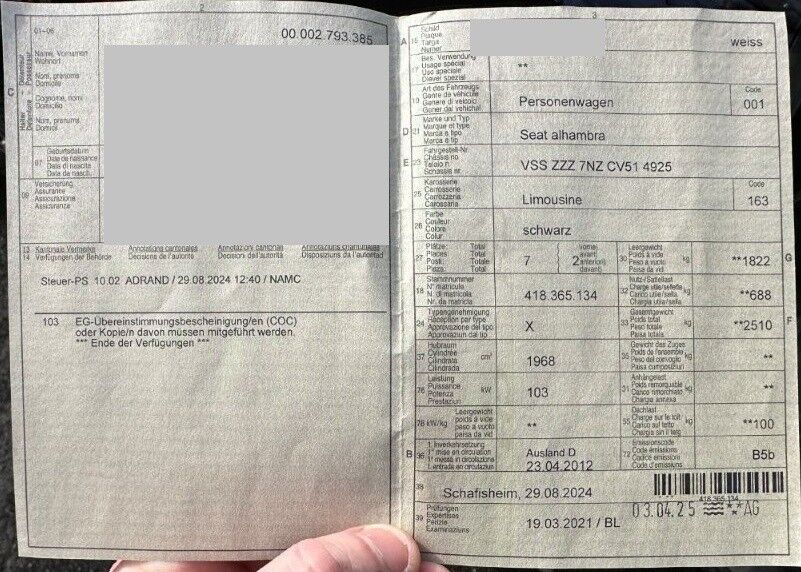 2
01-06
00.002.793.385
C
Name, Vornamen
Wohnort
Nom, prénoms
Domicile
Cognome, nomi
Domicilio
Num, prenums
Domicil
07
Geburtsdatum
Date de naissance
Data di nascita
Data da nasch.
Versicherung
Assurance
Assicurazione
Assicuranza
13 Kantonale Vermerke Annotations cantonales Annotazioni cantonali Annotaziuns chantunalas
14 Verfügungen der Behörde Décisions de l'autorité Decisioni dell'autorità Disposiziuns da l'autoritad
Steuer-PS 10.02 ADRAND / 29.08.2024 12:40 / NAMC
103 EG-Übereinstimmungsbescheinigung/en (COC)
oder Kopie/n davon müssen mitgeführt werden.
*** Ende der Verfügungen ***
3
A 15
Schild
Plaque
Targa
Numer
weiss
17
Bes. Verwendung
Usage spécial
Uso speciale
Diever spezial
**
19
Art des Fahrzeugs
Genre de véhicule
Genere di veicolo
Gener dal vehichel
Personenwagen
Code
001
D 21
Marke und Typ
Marque et type
Marca e tipo
Marca e tip
Seat alhambra
E 23
Fahrgestell-Nr.
Châssis no
Telaio n.
Schassis nr.
VSS ZZZ 7NZ CV51 4925
25
Karosserie
Carrosserie
Carrozzeria
Carossaria
Limousine
Code
163
26
Farbe
Couleur
Colore
Colur
schwarz
27
Plätze: Total
Places: Total
Posti: Total
Plazs: Total
7
vorne)
avant)
anteriori)
davant)
2
30
Leergewicht
Poids à vide
Peso a vuoto
Paisa da vid
kg
**1822
G
18
Stammnummer
N° matricule
N. di matricola
Nr. da matricla
418.365.134
32
Nutz-/Sattellast
Charge utile/sellette
Carico utile/sella
Chargia utila/sella
kg
**688
24
Typengenehmigung
Réception par type
Approvazione del tipo
Approvaziun dal tip
X
33
Gesamtgewicht
Poids total
Peso totale
Paisa totala
kg
**2510
F
37
Hubraum
Cylindrée
Cilindrata
Cilindrada
cm³
1968
35
Gewicht des Zuges
Poids de l'ensemble
Peso del convoglio
Paisa cumposiziun
kg
**
76
Leistung
Puissance
Potenza
Prestaziun
kW
103
31
Anhängelast
Poids remorquable
Carico rimorchiato
Chargia annexa
kg
**
78 kW/kg
Leergewicht
poids à vide
peso a vuoto
paisa da vid
**
55
Dachlast
Charge sur le toit
Carico sul tetto
Chargia sin il tetg
kg
**100
B 36
1. Inverkehrsetzung
1re mise en circulation
1a messa in circolazione
1. entrada en circulaziun
Ausland D
23.04.2012
72
Emissionscode
Code émissions
Codice emissioni
Code d'emissiuns
B5b
38
Schafisheim, 29.08.2024
418.365.134
39
Prüfungen
Expertises
Perizie
Examinaziuns
19.03.2021 / BL
03.04.25 ** AG